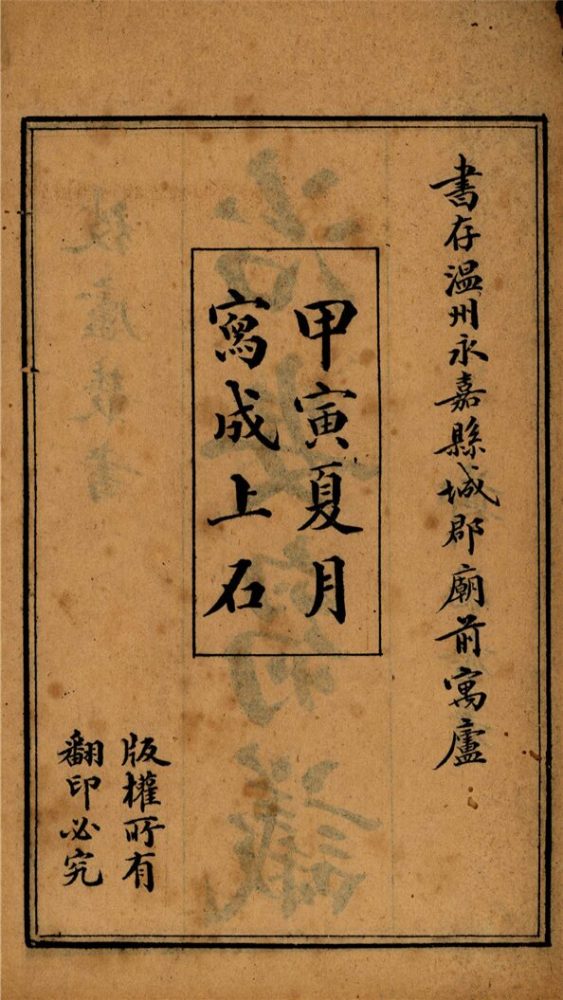 書存温州永嘉縣城郡廟前寓廬
甲寅夏月
寫成上石
版權所有
翻印必究